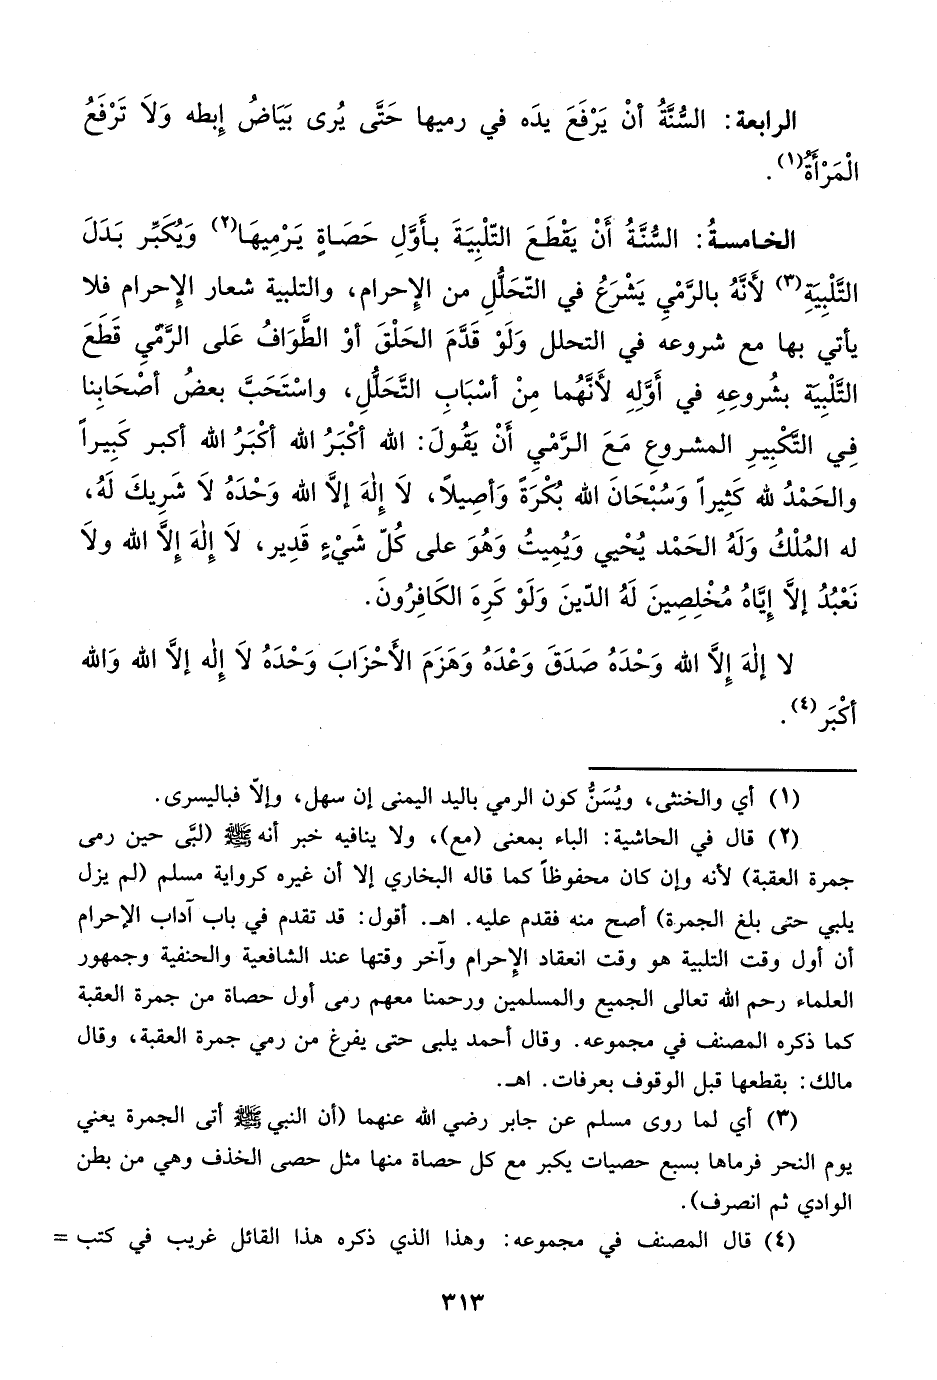 الرابعة: السُّنَّةُ أنْ يَرْفَعَ يدَه في رميها حَتَّى يُرى بَيَاضُ إبطه وَلاَ تَرْفَعُ
الْمَرْأَةُ(١).
الخامسةُ: السُّنَّةُ أَنْ يَقْطَعَ التَّلْبِيَةَ بأَوَّلِ حَصَاةٍ يَرْمِيهَا(٢) وَيُكَبِّر بَدَلَ
التَّلْبِيَةِ(٣) لأَنَّهُ بالرَّمْيِ يَشْرَعُ في التّحَلُّلِ من الإحرام، والتلبية شعار الإحرام فلا
يأتي بها مع شروعه في التحلل وَلَوْ قَدَّمَ الحَلْقَ أوْ الطَّوَافُ عَلى الرَّمّي قَطَعَ
التَّلْبِيَة بشُروعِهِ في أَوَّلِهِ لأَنَّهُما مِنْ أسْبَابِ التَّحَلُّلِ، واسْتَحَبَّ بعضُ أصْحَابنا
فِي التَّكْبِيرِ المشروعِ مَعَ الرَّمْيِ أنْ يَقُولَ: الله أكْبَرُ الله أكْبَرُ الله أكبر كَبِيراً
والحَمْدُ لله كَثِيراً وَسُبْحَانَ الله بُكْرَةً وَأصِيلاً، لاَ إلهَ إلاَّ الله وَحْدَهُ لاَ شَرِيكَ لَهُ،
له المُلْكُ وَلَهُ الحَمْد يُحْيي وَيُمِيتُ وَهُوَ على كُلّ شَيْءٍ قَدِير، لاَ إلهَ إلاَّ الله ولاَ
نَعْبُدُ إلاَّ إيَّاهُ مُخْلِصِينَ لَهُ الدّينَ وَلَوْ كَرِهَ الكَافِرُونَ.
لا إلهَ إلاَّ الله وَحْدَهُ صَدَقَ وَعْدَهُ وَهَزَمَ الأَحْزَابَ وَحْدَهُ لاَ إله إلاَّ الله وَالله
أكْبَر(٤).
(١) أي والخنثى، ويُسَنُّ كون الرمي باليد اليمنى إن سهل، وإلاّ فباليسرى.
(٢) قال في الحاشية: الباء بمعنى (مع)، ولا ينافيه خبر أنه ﷺ (لبَّى حين رمى
جمرة العقبة) لأنه وإن كان محفوظاً كما قاله البخاري إلا أن غيره كرواية مسلم (لم يزل
يلبي حتى بلغ الجمرة) أصح منه فقدم عليه. اهـ. أقول: قد تقدم في باب آداب الإحرام
أن أول وقت التلبية هو وقت انعقاد الإحرام وآخر وقتها عند الشافعية والحنفية وجمهور
العلماء رحم الله تعالى الجميع والمسلمين ورحمنا معهم رمى أول حصاة من جمرة العقبة
كما ذكره المصنف في مجموعه. وقال أحمد يلبى حتى يفرغ من رمي جمرة العقبة، وقال
مالك: بقطعها قبل الوقوف بعرفات. اهـ.
(٣) أي لما روى مسلم عن جابر رضي الله عنهما (أن النبي ﷺ أتى الجمرة يعني
يوم النحر فرماها بسبع حصيات يكبر مع كل حصاة منها مثل حصى الخذف وهي من بطن
الوادي ثم انصرف).
(٤) قال المصنف في مجموعه: وهذا الذي ذكره هذا القائل غريب في كتب =
٣١٣